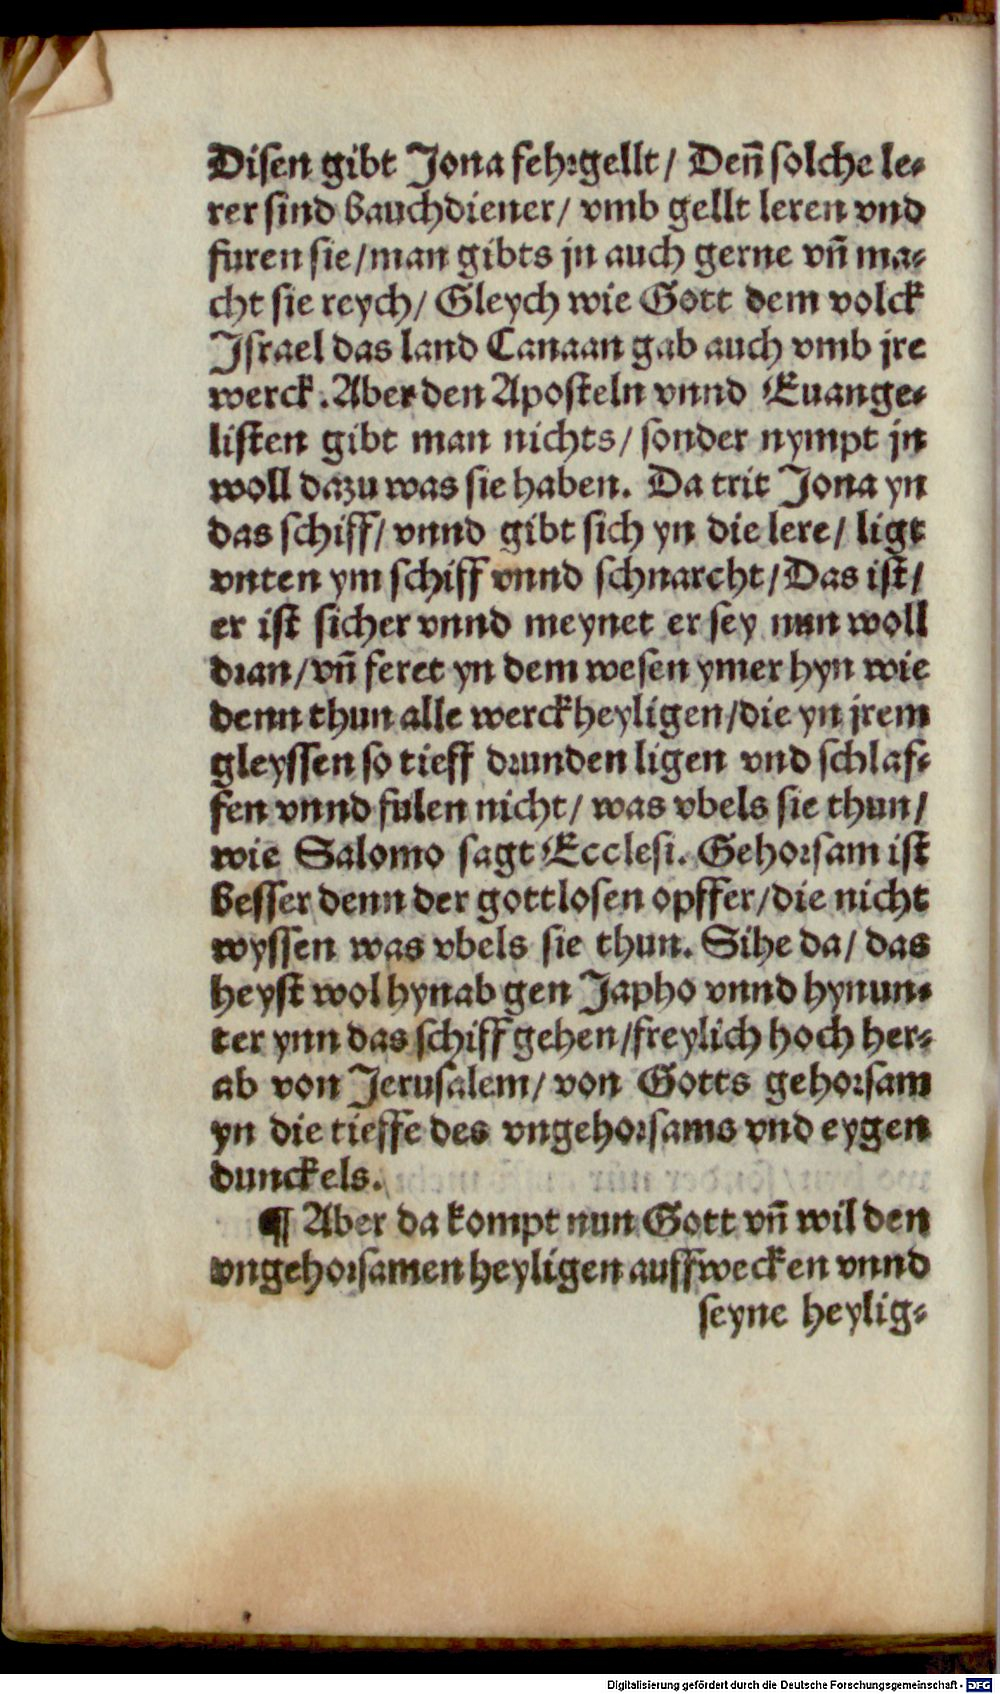 Disen gibt Jona fehrgellt / Deñ solche le⸗
rer sind bauchdiener / vmb gellt leren vnd
furen sie / man gibts jn auch gerne vñ ma⸗
cht sie reych / Gleych wie Gott dem volck
Israel das land Canaan gab auch vmb jre
werck. Aber den Aposteln vnnd Euange⸗
listen gibt man nichts / sonder nympt jn
woll dazu was sie haben. Da trit Jona yn
das schiff / vnnd gibt sich yn die lere / ligt
vnten ym schiff vnnd schnarcht / Das ist /
er ist sicher vnnd meynet er sey nun woll
dran / vñ feret yn dem wesen ymer hyn wie
denn thun alle werckheyligen / die yn jrem
gleyssen so tieff drunden ligen vnd schlaf⸗
fen vnnd fulen nicht / was vbels sie thun /
wie Salomo sagt Ecclesi. Gehorsam ist
besser denn der gottlosen opffer / die nicht
wyssen was vbels sie thun. Sihe da / das
heyst wol hynab gen Japho vnnd hynun⸗
ter ynn das schiff gehen / freylich hoch her⸗
ab von Jerusalem / von Gotts gehorsam
yn die tieffe des vngehorsams vnd eygen
dunckels.
¶ Aber da kompt nun Gott vñ wil den
vngehorsamen heyligen auffwecken vnnd
seyne heylig⸗
Digitalisierung gefördert durch die Deutsche Forschungsgemeinschaft - DFG